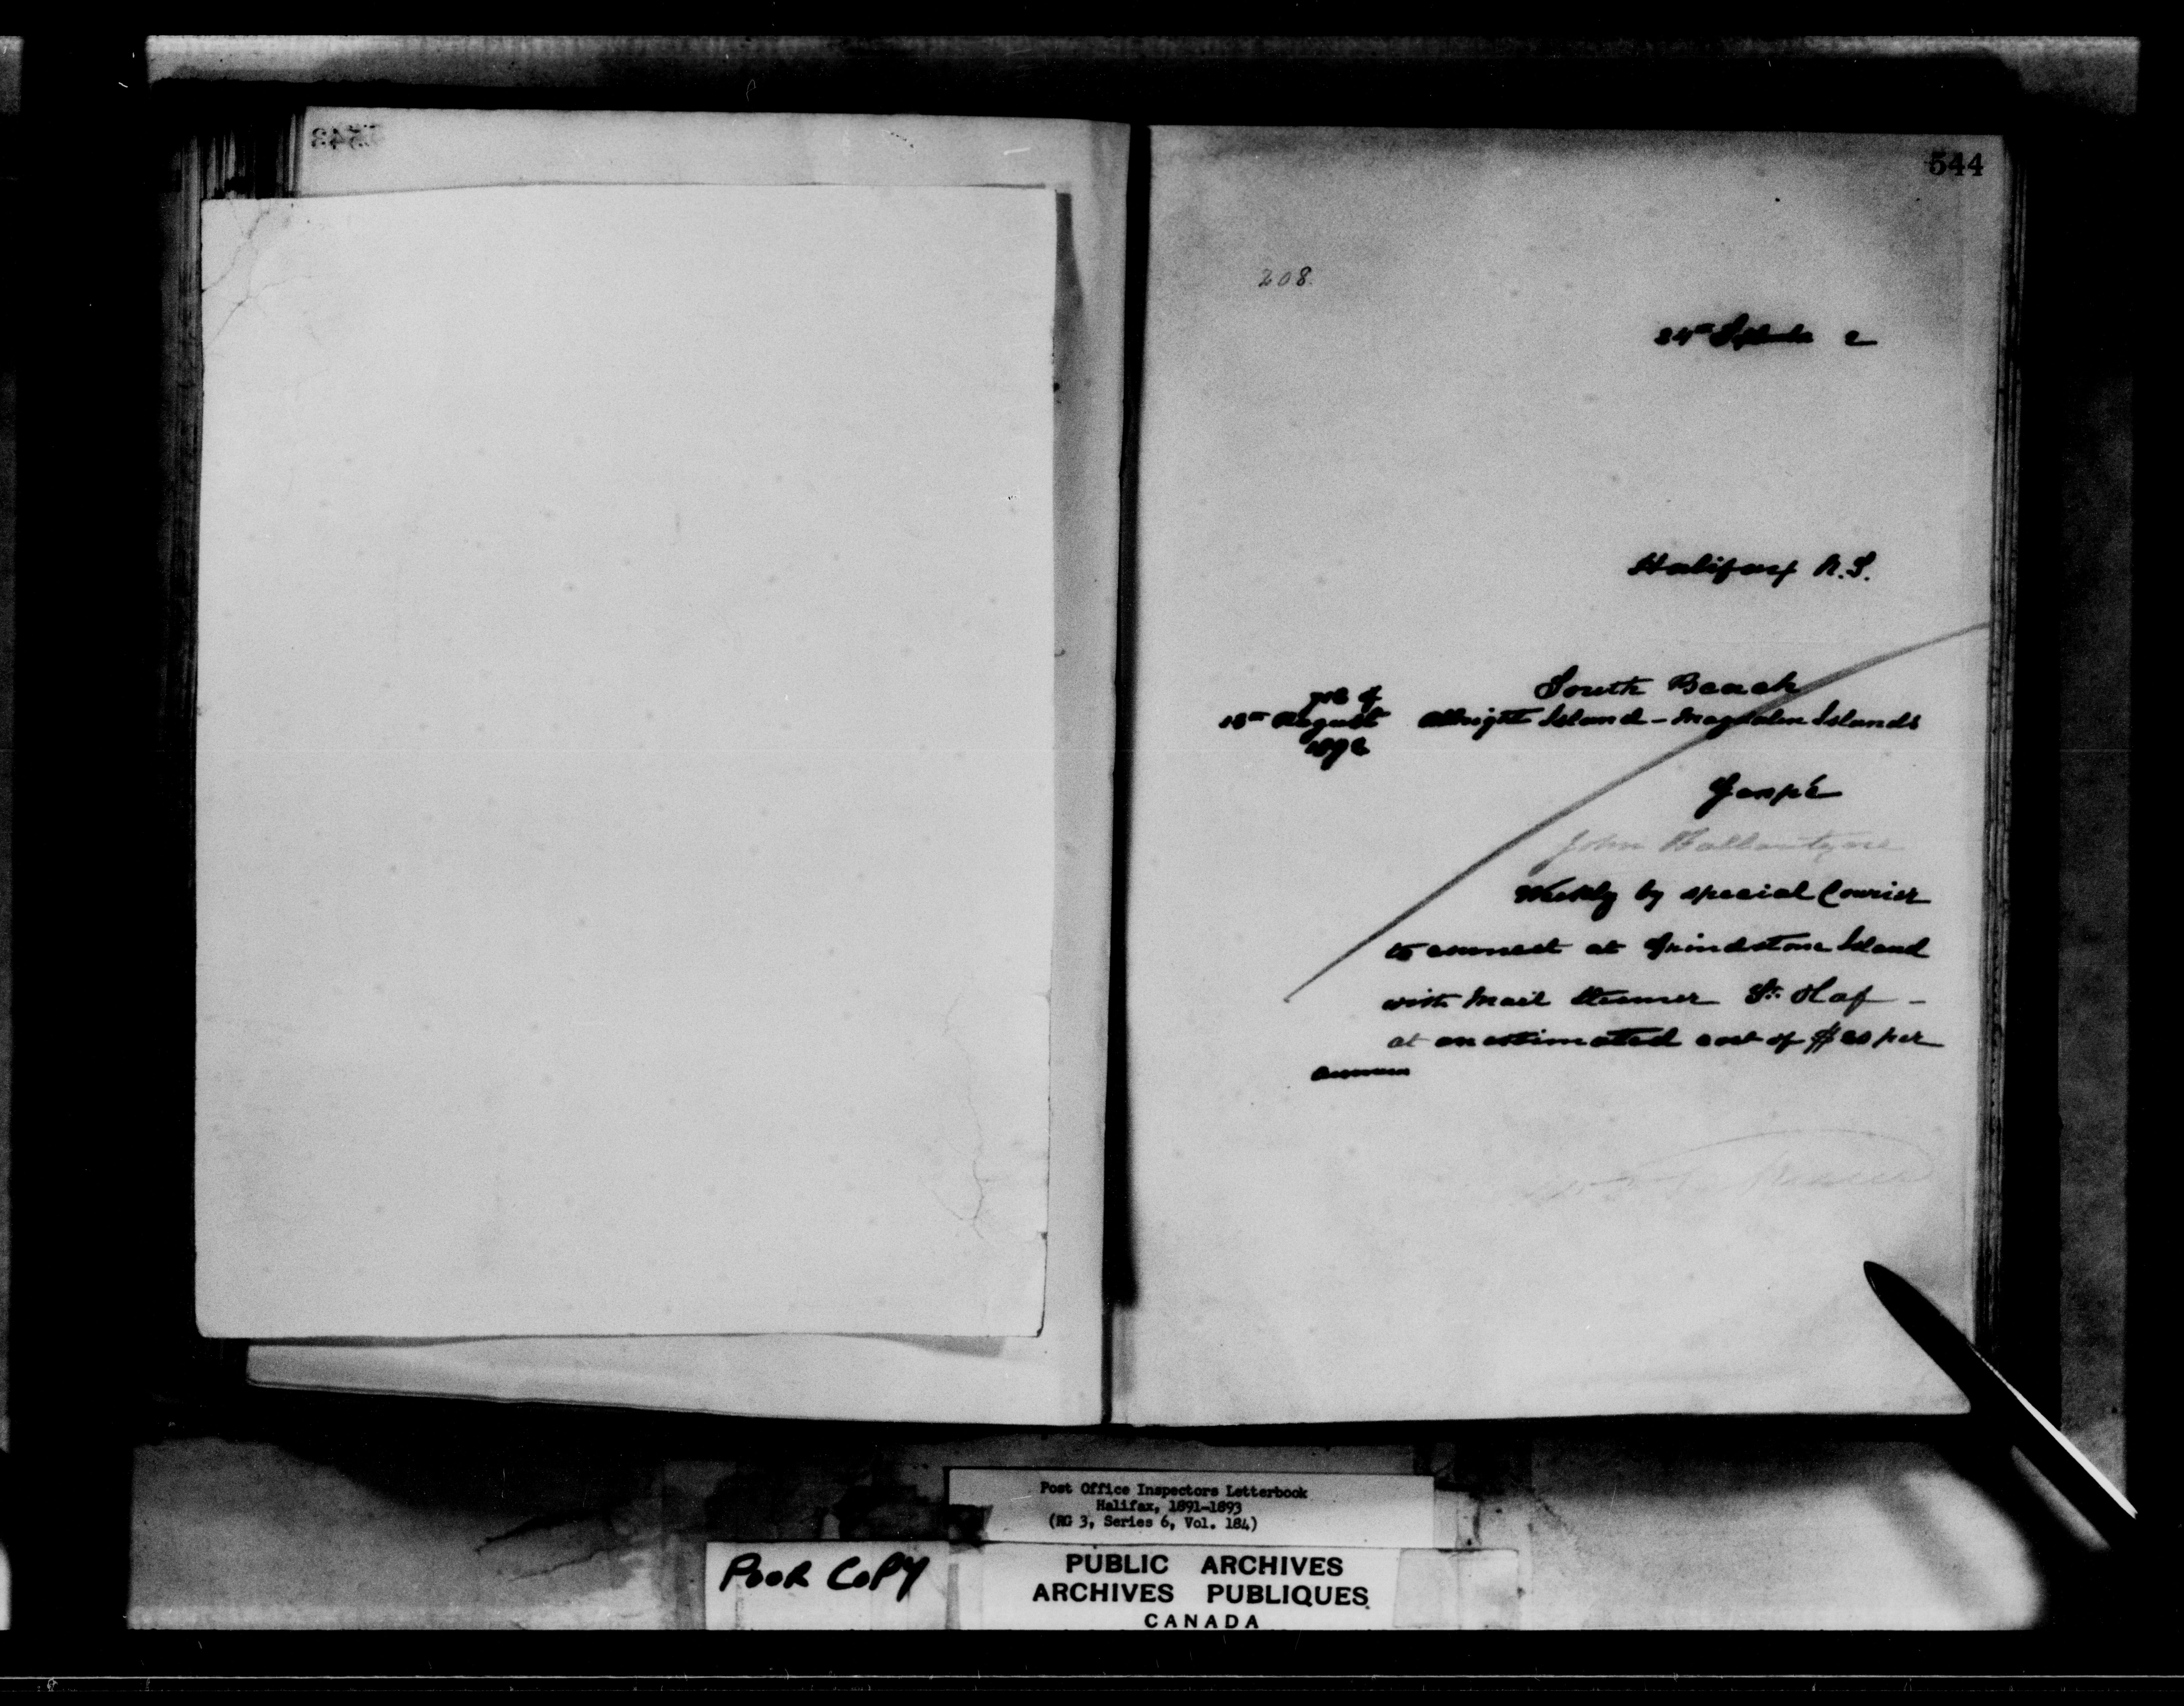 543
544
208
24th September 2
Halifax N.S.
South Beach
yrs of
18th August Allright Island - Magdalen Islands
1892
Gaspé
John Ballantyne
Weekly by special Courier
to connect at Grindstone Island
with Mail Steamer St. Olaf -
at an estimated cost of $20 per
annum
Post Office Inspectors Letterbook
Halifax, 1891-1893
(RG 3, Series 6, Vol. 184)
POOR COPY
PUBLIC ARCHIVES
ARCHIVES PUBLIQUES
CANADA